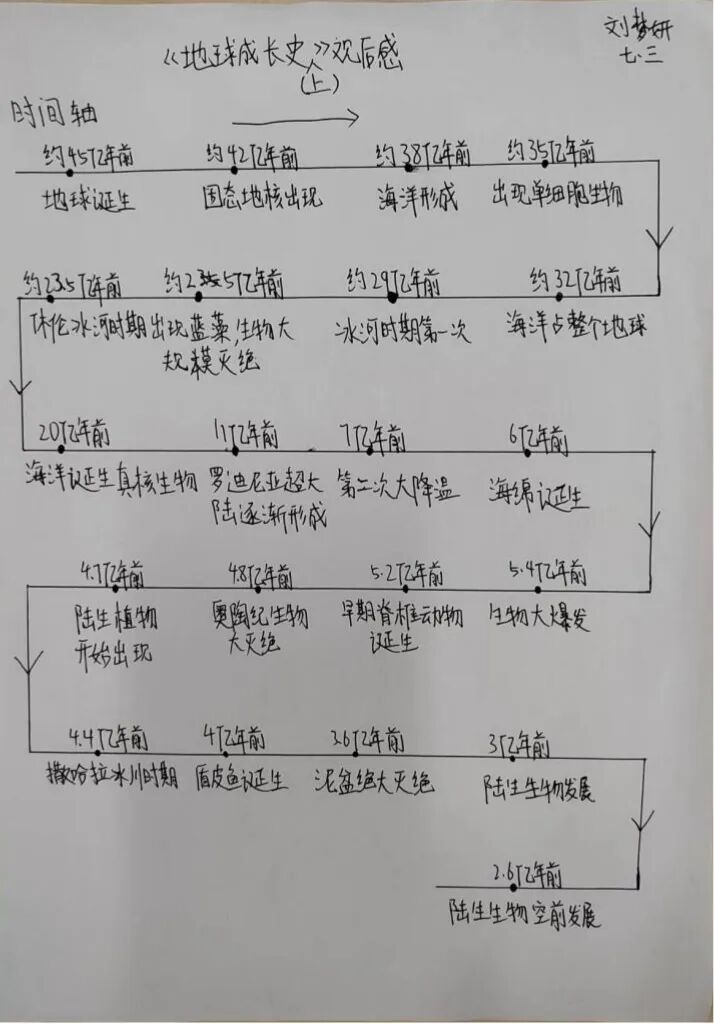 刘梦妍
七.三
《地球成长史》观后感
(上)
时间轴
约45亿年前 约42亿年前 约38亿年前 约35亿年前
地球诞生 固态地核出现 海洋形成 出现单细胞生物
约23.5亿年前 约2 5亿年前 约29亿年前 约32亿年前
休伦冰河时期 出现蓝藻,生物大 冰河时期第一次 海洋占整个地球
规模灭绝
20亿年前 11亿年前 7亿年前 6亿年前
海洋诞生真核生物 罗迪尼亚超大 第二次大降温 海绵诞生
陆逐渐形成
4.7亿年前 4.8亿年前 5.2亿年前 5.4亿年前
陆生植物 奥陶纪生物 早期脊椎动物 生物大爆发
开始出现 大灭绝 诞生
4.4亿年前 4亿年前 3.6亿年前 3亿年前
撒哈拉冰川时期 盾皮鱼诞生 泥盆绝大灭绝 陆生生物发展
2.6亿年前
陆生生物空前发展